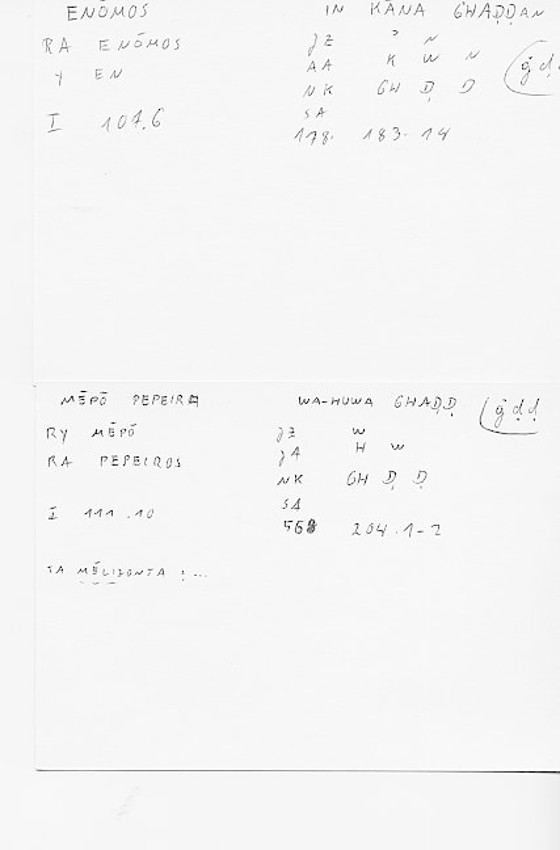 ENŌMOS IN KĀNA GHAḌḌAN
RA ENŌMOS JZ ʾ N
Y EN AA K W N
NK GH Ḍ Ḍ
(ġḍ
I 107.6
SA
178. 183.14
MĒPŌ PEPEIRA WA-HUWA GHAḌḌ (ġḍḍ
RY MĒPŌ JZ W
RA PEPEIROS JA H W
NK GH Ḍ Ḍ
I 111.10 SA
568 204.1-2
TA MĒLIZONTA : ...